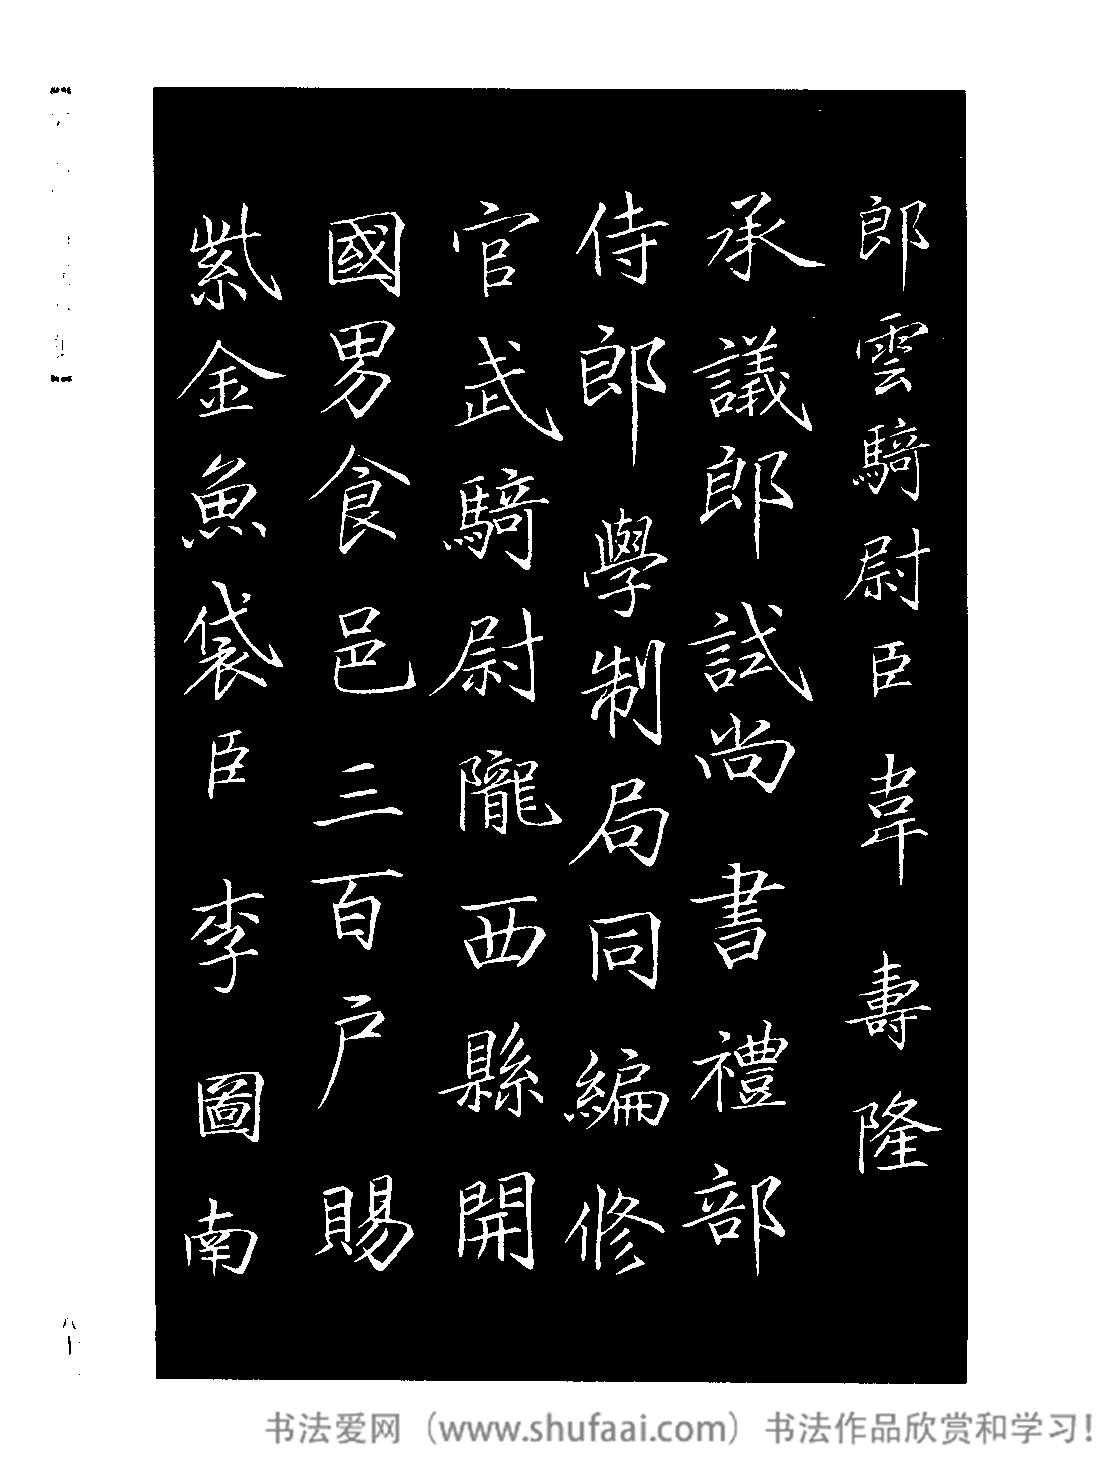 郎雲騎尉臣韋壽隆
承議郎試尚書禮部
侍郎學制局同編修
官武騎尉隴西縣開
國男食邑三百户賜
紫金魚袋臣李圖南
八十
书法爱网（www.shufaai.com）书法作品欣赏和学习！